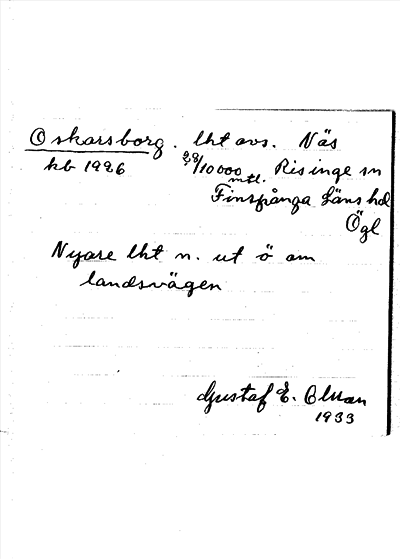 Oskarsborg. lht avs. Näs
kb 1926 28/10000 mtl. Risinge sn
Finspånga Läns hd
Ögl
Nyare lht n. ut ö om
landsvägen
Gustaf E. Ohlson
1933